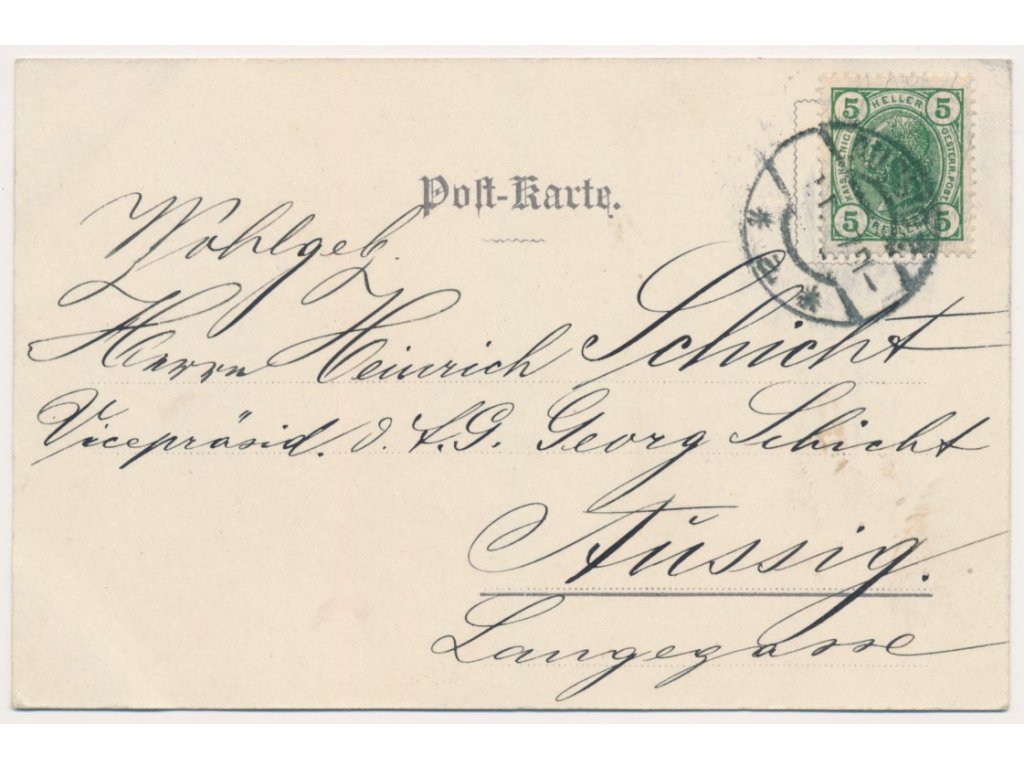 Post-Karte.
5 HELLER 5
KAIS. KÖNIGL.
OESTERR. POST
5 HELLER 5
AUSSIG
Wohlgeb.
Herrn Heinrich Schicht
Vicepräsid. d. A.G. Georg Schicht
Aussig.
Langegasse